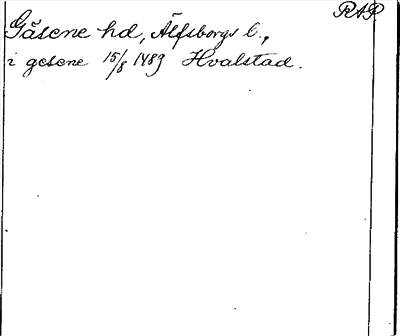 RAP
Gäsene hd, Älfsborgs l.,
i gesene 15/8 1489 Hvalstad.